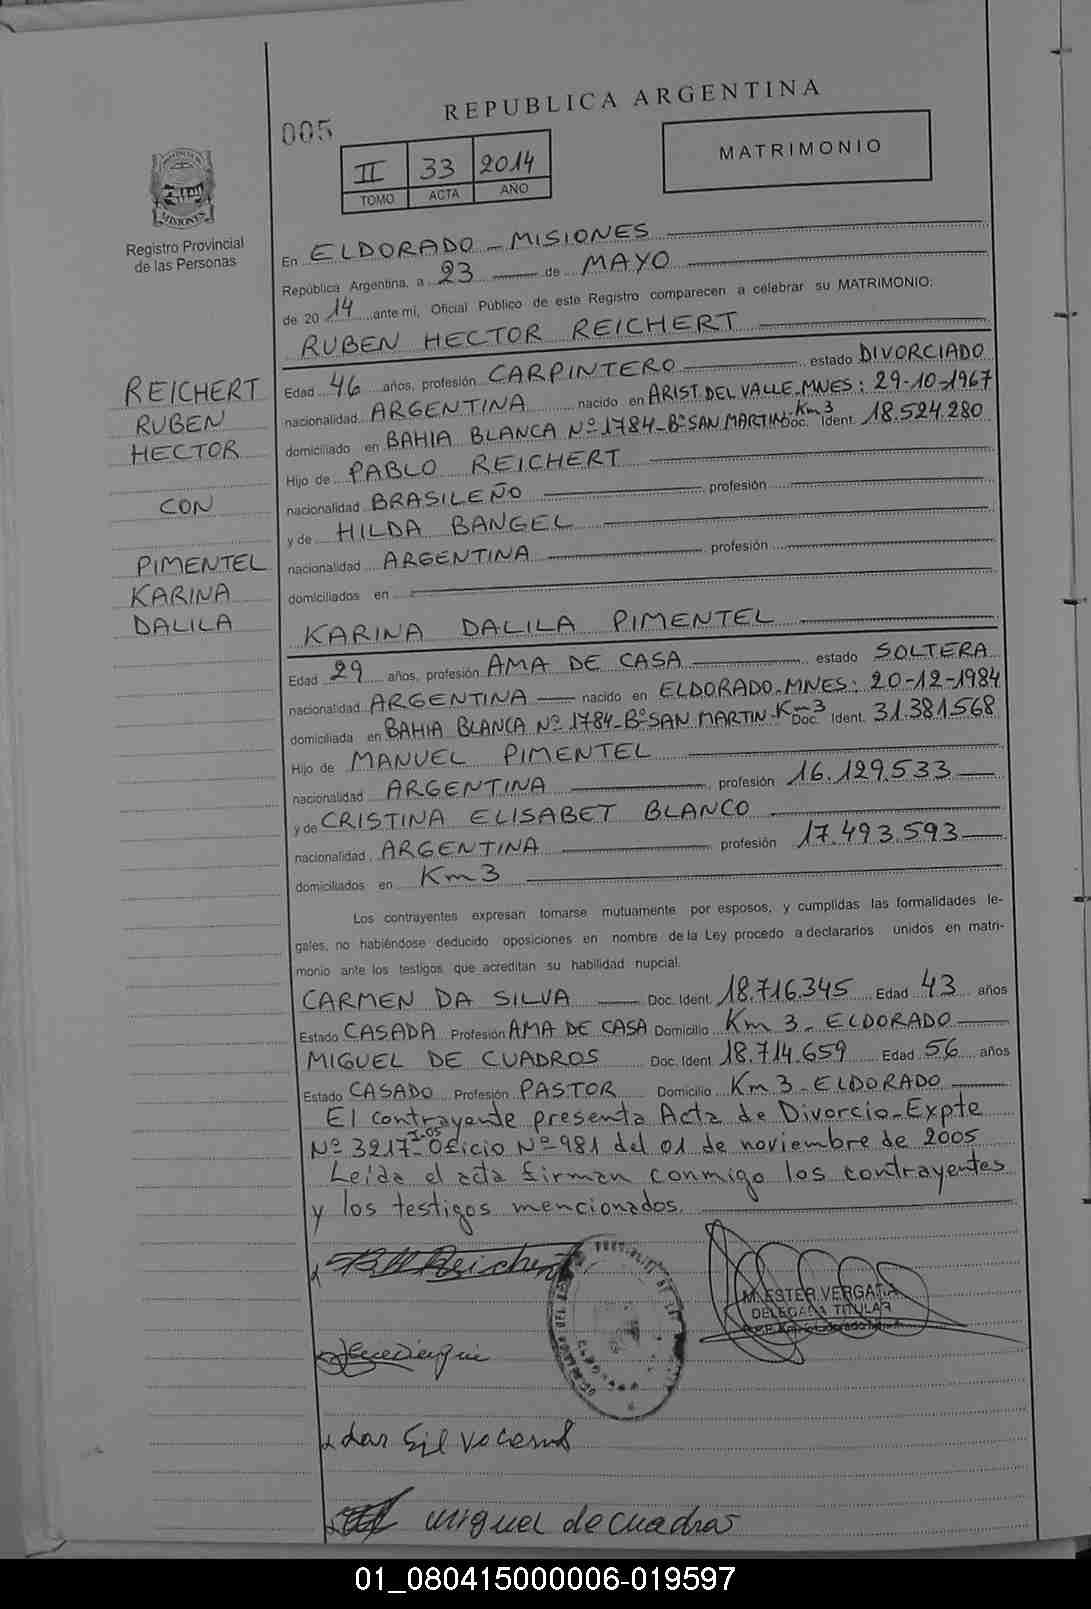 REPUBLICA ARGENTINA
005
MATRIMONIO
II 33 2014
TOMO ACTA AÑO
MISIONES
Registro Provincial
de las Personas
En ELDORADO - MISIONES
República Argentina, a 23 de MAYO
de 20 14 ante mí, Oficial Público de este Registro comparecen a celebrar su MATRIMONIO:
RUBEN HECTOR REICHERT
REICHERT
RUBEN
HECTOR
CON
PIMENTEL
KARINA
DALILA
Edad 46 años, profesión CARPINTERO estado DIVORCIADO
nacionalidad ARGENTINA nacido en ARIST.DEL VALLE.MNES: 29-10-1967
domiciliado en BAHIA BLANCA Nº 1784-Bº SAN MARTIN-Km3 Doc. Ident. 18.524.280
Hijo de PABLO REICHERT
nacionalidad BRASILEÑO profesión
y de HILDA BANGEL
nacionalidad ARGENTINA profesión
domiciliados en
KARINA DALILA PIMENTEL
Edad 29 años, profesión AMA DE CASA estado SOLTERA
nacionalidad ARGENTINA nacido en ELDORADO.MNES: 20-12-1984
domiciliada en BAHIA BLANCA Nº 1784-Bº SAN MARTIN-Km3 Doc. Ident. 31.381.568
Hijo de MANUEL PIMENTEL
nacionalidad ARGENTINA profesión 16.129.533
y de CRISTINA ELISABET BLANCO
nacionalidad ARGENTINA profesión 17.493.593
domiciliados en Km3
Los contrayentes expresan tomarse mutuamente por esposos, y cumplidas las formalidades le-
gales, no habiéndose deducido oposiciones en nombre de la Ley procedo a declararlos unidos en matri-
monio ante los testigos que acreditan su habilidad nupcial.
CARMEN DA SILVA Doc. Ident. 18.716.345 Edad 43 años
Estado CASADA Profesión AMA DE CASA Domicilio Km 3 - ELDORADO
MIGUEL DE CUADROS Doc. Ident. 18.714.659 Edad 56 años
Estado CASADO Profesión PASTOR Domicilio Km 3 - ELDORADO
El contrayente presenta Acta de Divorcio-Expte
Nº 3217-I-05 Oficio Nº 981 del 01 de noviembre de 2005
Leída el acta firman conmigo los contrayentes
y los testigos mencionados.
Reichert
M. ESTER VERGARA
DELEGADA TITULAR
miguel de cuadros
01_080415000006-019597